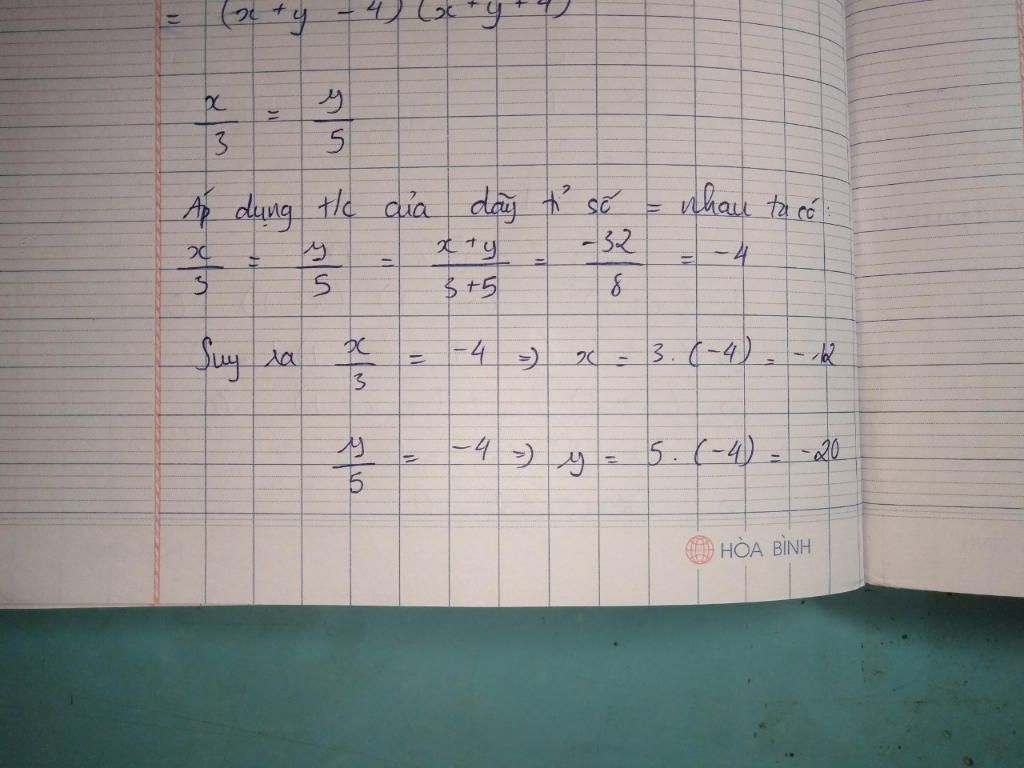 = (x + y - 4) (x + y + 4)
x/3 = y/5
Áp dụng t/c của dãy tỉ số = nhau ta có:
x/3 = y/5 = (x + y)/(3 + 5) = -32/8 = -4
Suy ra x/3 = -4 => x = 3 . (-4) = -12
y/5 = -4 => y = 5 . (-4) = -20
HÒA BÌNH